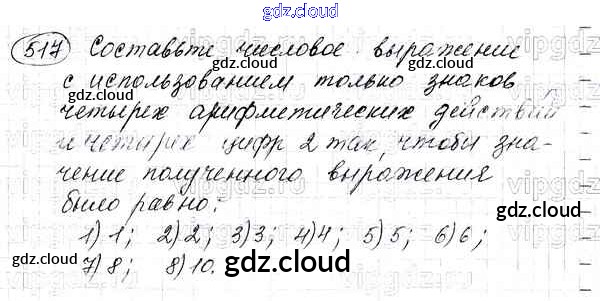 gdz.cloud
517 Составьте числовое выражение
с использованием только знаков
gdz.cloud gdz.cloud
четырех арифметических действий
и четырех цифр 2 так, чтобы зна-
gdz.cloud
чение полученного выражения
было равно:
gdz.cloud gdz.cloud
1) 1; 2) 2; 3) 3; 4) 4; 5) 5; 6) 6;
7) 8; 8) 10.
gdz.cloud